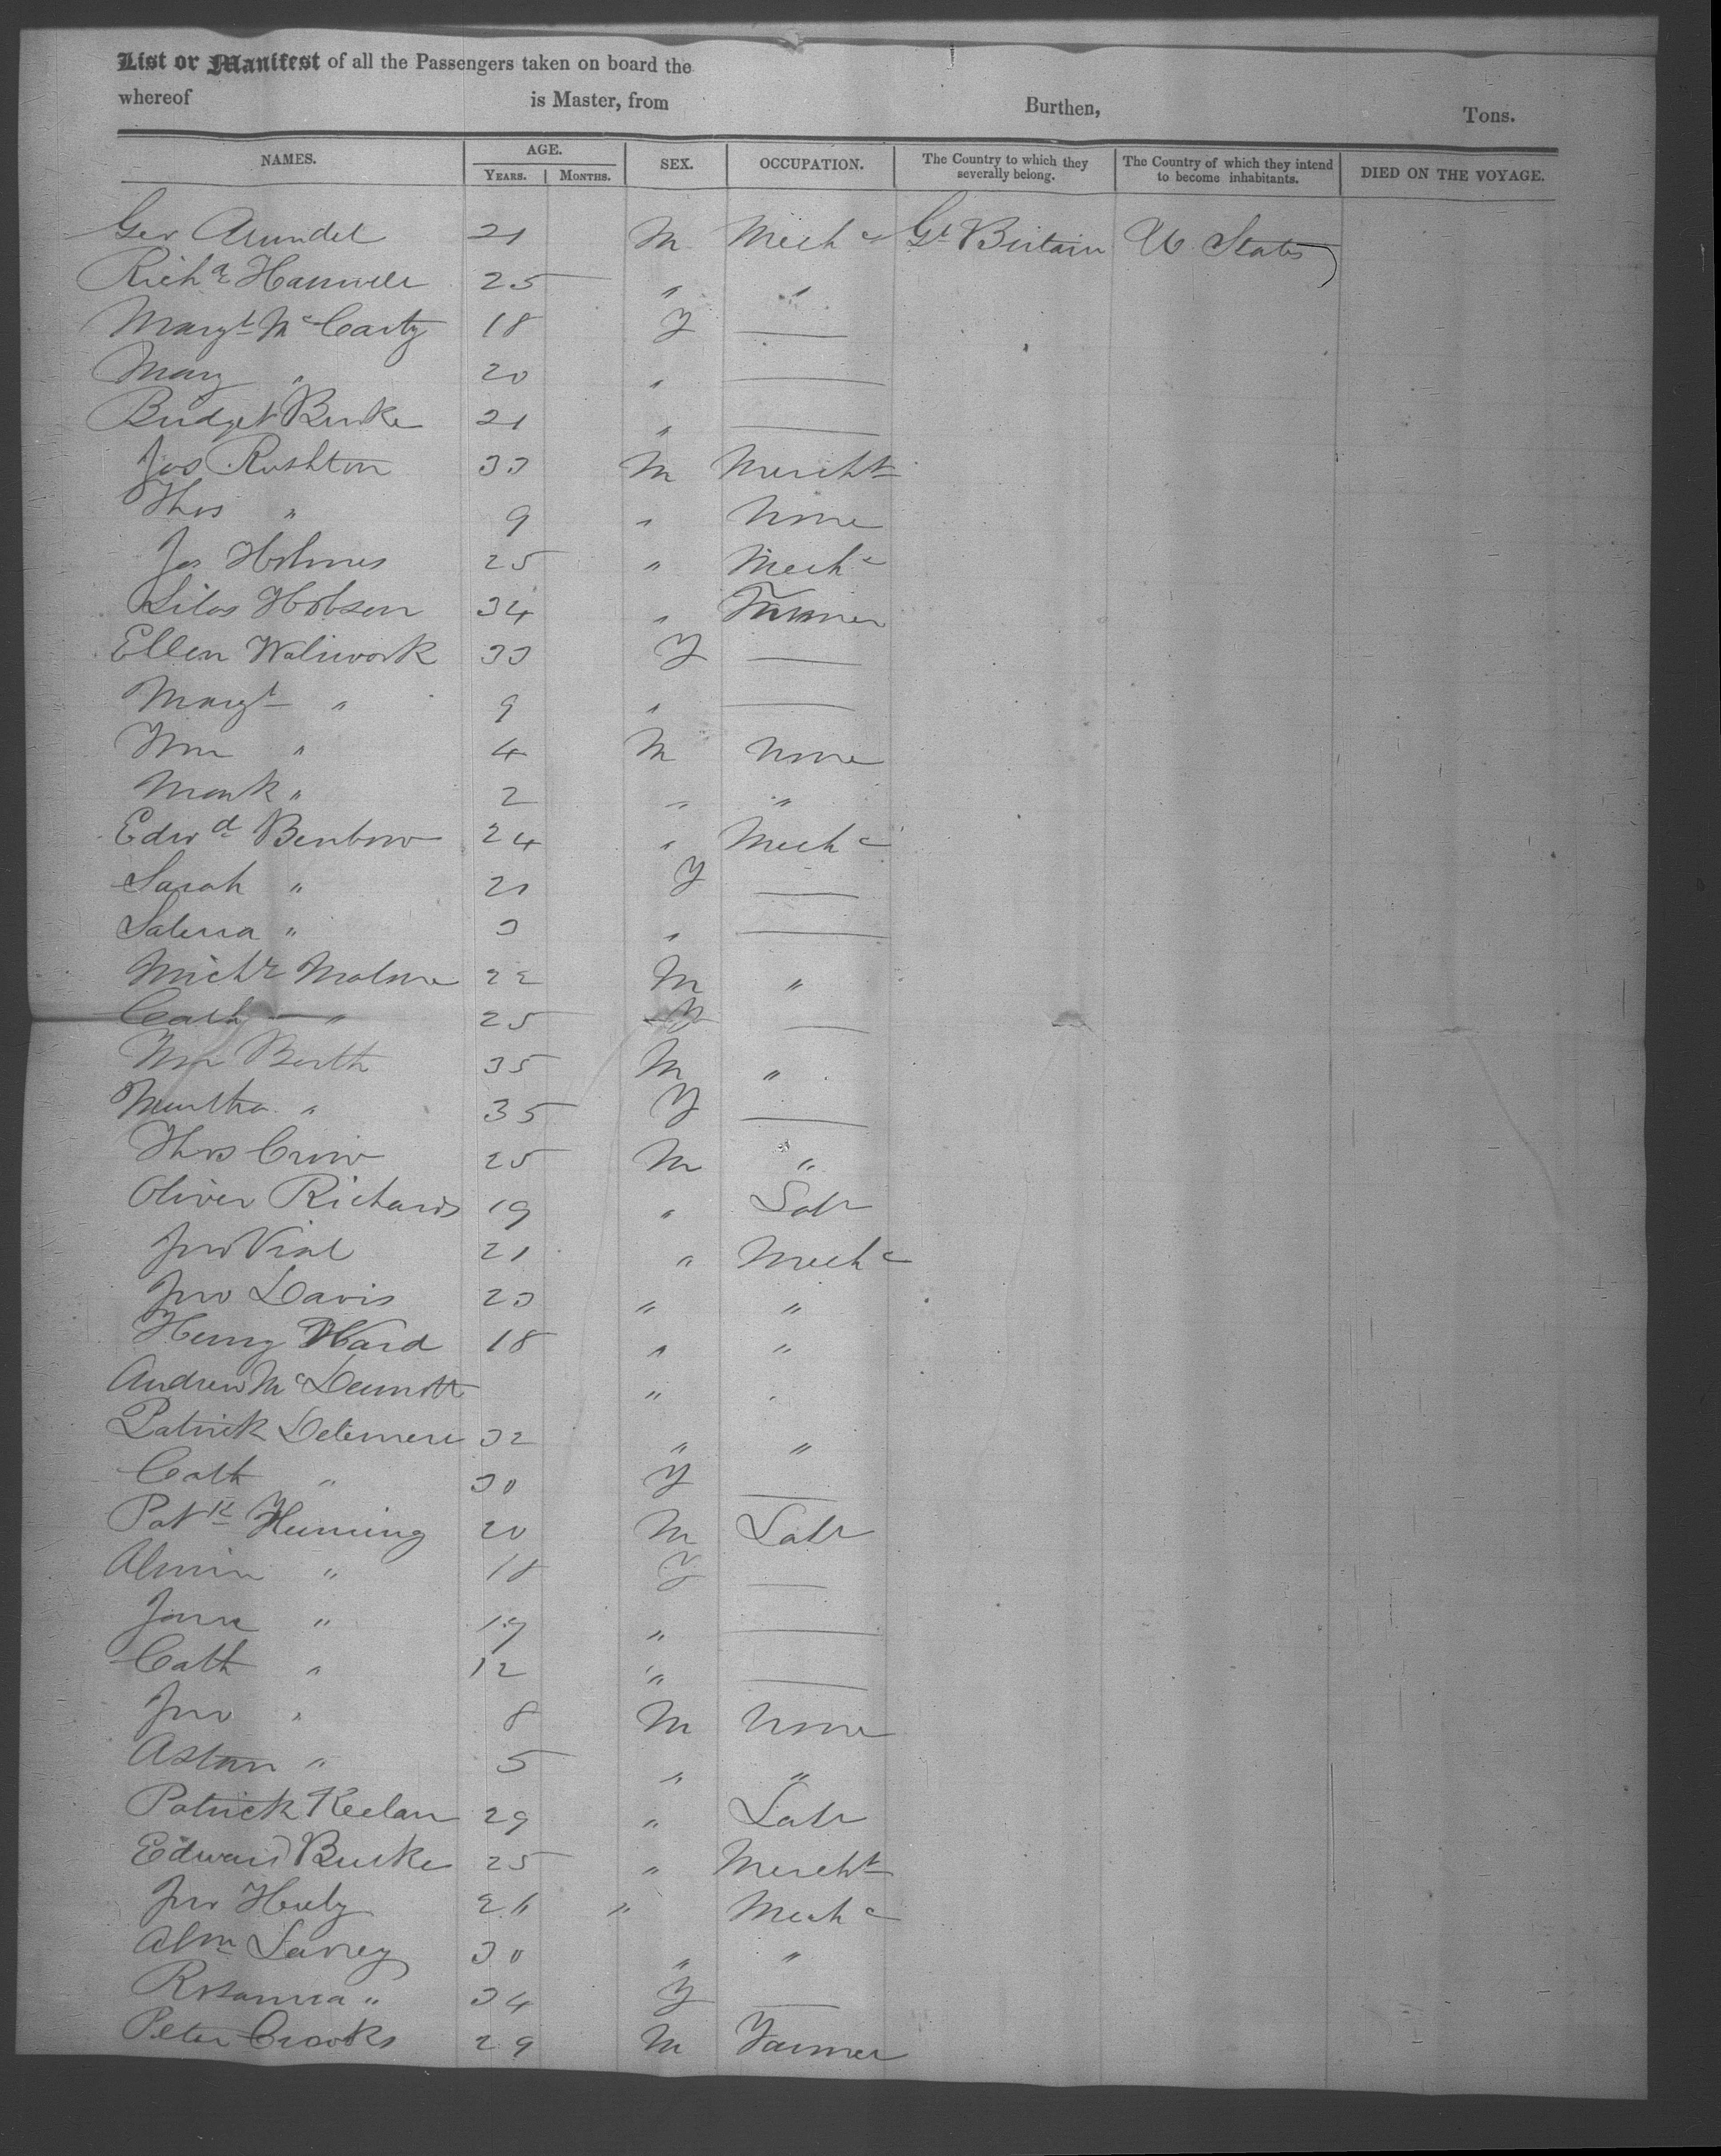 List or Manifest of all the Passengers taken on board the
whereof is Master, from Burthen, Tons.
NAMES. AGE. YEARS. MONTHS. SEX. OCCUPATION. The Country to which they severally belong. The Country of which they intend to become inhabitants. DIED ON THE VOYAGE.
Geo Arundel 21 M Mechc Gt Britain U States
Richd Hanwell 25 " "
Margt McCarty 18 F —
Mary " 20 " —
Bridget Burke 21 " —
Jos Rushton 33 M Mercht
Thos " 9 " None
Jas Holmes 25 " Mechc
Silas Hobson 34 " Farmer
Ellen Walwork 33 F —
Margt " 9 " —
Wm " 4 M None
Mark " 2 " "
Edwd Benbow 24 " Mechc
Sarah " 21 F —
Salena " 3 " —
Michl Malone 22 M "
Cath " 25 F —
Wm Berth 35 M "
Martha " 35 F —
Thos Crow 25 M "
Oliver Richards 19 " Labr
Jno Vial 21 " Mechc
Jno Davis 23 " "
Henry Ward 18 " "
Andrew McDermott "
Patrick Delemere 32 " "
Cath " 30 F —
Patk Fleming 20 M Labr
" 18 F —
Jane " 17 " —
Cath " 12 " —
Jno " 8 M None
" 5 " "
Patrick Keelan 29 " Labr
Edward Burke 25 " Mercht
Jno Healy " Mechc
Abm 30 " "
Rosanna " 34 F —
Peter Crooks 29 M Farmer